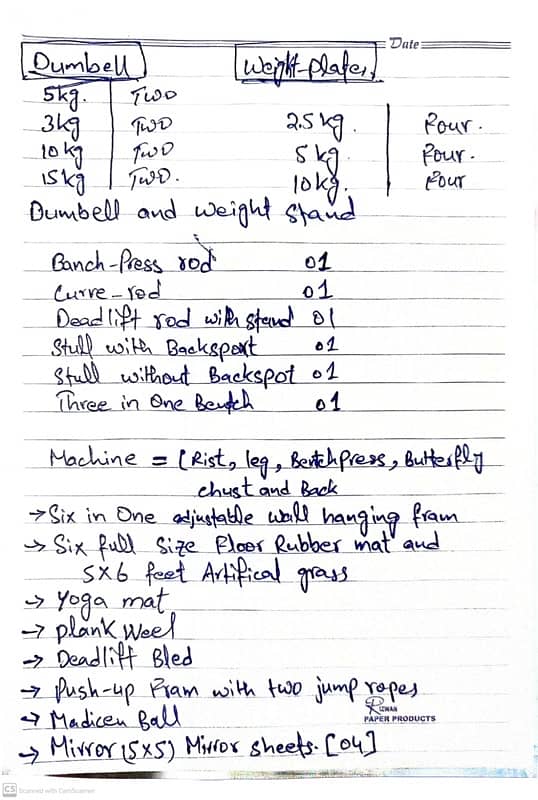 Date
Dumbell Weight-plates
5kg. Two
3kg Two 2.5 kg. Four.
10 kg Two 5 kg Four.
15kg Two. 10 kg. Four
Dumbell and weight stand
Banch-Press rod 01
Curve-rod 01
Deadlift rod with stand 01
Stull with Backsport 01
Stull without Backspot 01
Three in One Bentch 01
Machine = (Rist, leg, Bentchpress, Butterfly
chust and Back
→ Six in One adjustable wall hanging fram
→ Six full Size Floor Rubber mat and
5x6 feet Artifical grass
→ Yoga mat
→ Plank Weel
→ Deadlift Bled
→ Push-up Fram with two jump ropes
→ Madicen Ball
RIZWAN
PAPER PRODUCTS
→ Mirror (5x5) Mirror sheets. [04]
CS Scanned with CamScanner